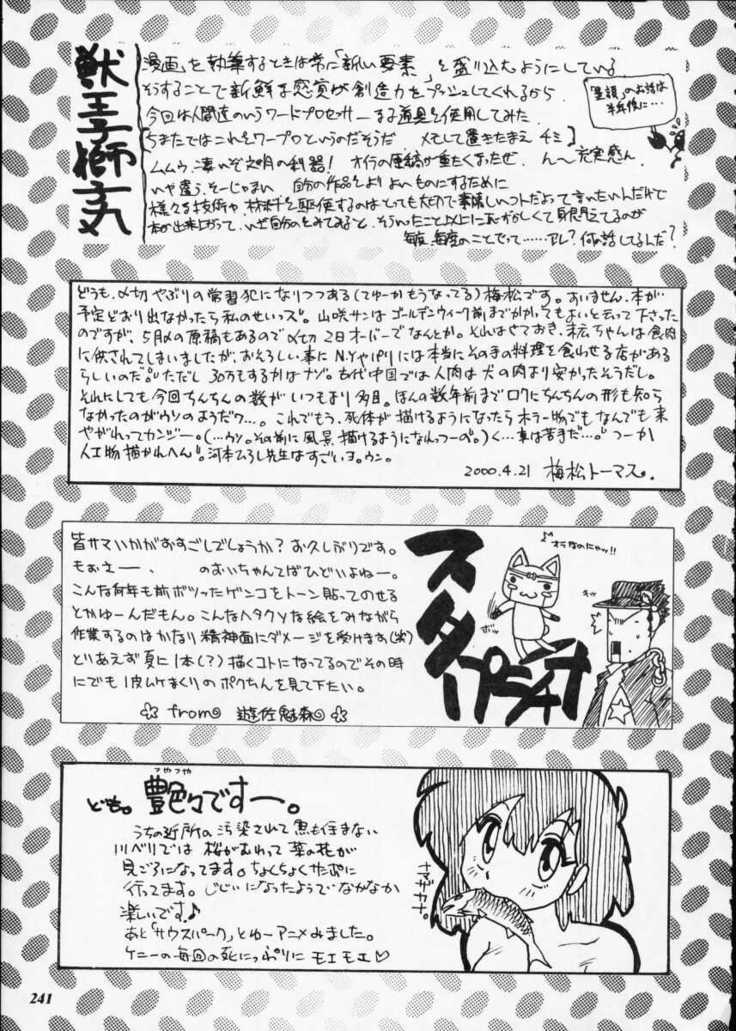 獣王子獅子丸
漫画を執筆するときは常に「新しい要素」を盛り込むようにしている
そうすることで新鮮な感覚が創造力をプッシュしてくれるから
今回は人間達のいうワードプロセッサーなる道具を使用してみた
ちまたではこれをワープロというのだそうだ　メモして置きたまえ チミ
ムムウ、凄いぞ文明の利器！　オイラの原稿が重たくなったぜ　ん～充実感ん。
いや違う、そーじゃない　自分の作品をより よいものにするために
様々な技術や、機材を駆使するのはとても大切で素晴しいコトだよって言いたいんだけど
毎度、毎度のことでって……アレ？何の話してるんだ？
のお話は
半年後に…
どうも、〆切やぶりの常習犯になりつつある(てゆーかもうなってる)梅松です。すいません、本が
予定どおり出なかったら私のせいッス。山咲サンはゴールデンウィーク前までかかってもよいと云って下さった
のですが、5月〆の原稿もあるので〆切2日オーバーでなんとか。それはさておき、末広ちゃんは食肉
に供されてしまいましたが、おそろしい事にN.Yやパリには本当にそのまま料理を食わせる店がある
らしいのだ。ただし30万もするかはナゾ。古代中国では人肉は犬の肉より安かったそうだし。
それにしても今回ちんちんの数がいつもより多目。ほんの数年前までロクにちんちんの形も知ら
なかったのがウソのようだワ…。これでもう、死体が描けるようになったらホラー物でもなんでも来
やがれってカンジー。(…ウソ。その前に風景描けるようになれっつーの。)く…車は苦手だ…。つーか
人工物描かれへん。河本ひろし先生はすごいヨ。ウン。
2000.4.21 梅松トーマス。
皆サマいかがおすごしでしょうか？お久しぶりです。
もぉさー、　のおいちゃんてばひどいよねー。
こんな何年も前ボツったゲンコをトーン貼ってのせる
とかゆーんだもん。こんなヘタクソな絵をみながら
作業するのはかなり精神面にダメージを受けます(笑)
とりあえず夏に1本(？)描くコトになってるのでその時
にでも1皮ムケまくりのボクちんを見て下たい。
from 遊佐魅森
オラなのにャッ!!
スタープラチナ
つやつや
ども。艶々ですー。
うちの近所の汚染されて魚も住まない
川べりでは 桜がむれって菜の花が
見ごろになってます。ちょくちょくサんぽに
行ってます。じじいになったようでなかなか
楽しいです♪
あと「サウスパーク」とゆーアニメみました。
ケニーの毎回の死にっぷりに モエモエ♡
ナマザカナ。
241